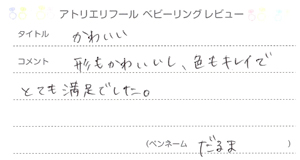 アトリエリフール ベビーリングレビュー
タイトル かわいい
コメント 形もかわいいし、色もキレイで
とても満足でした。
(ペンネーム だるま )